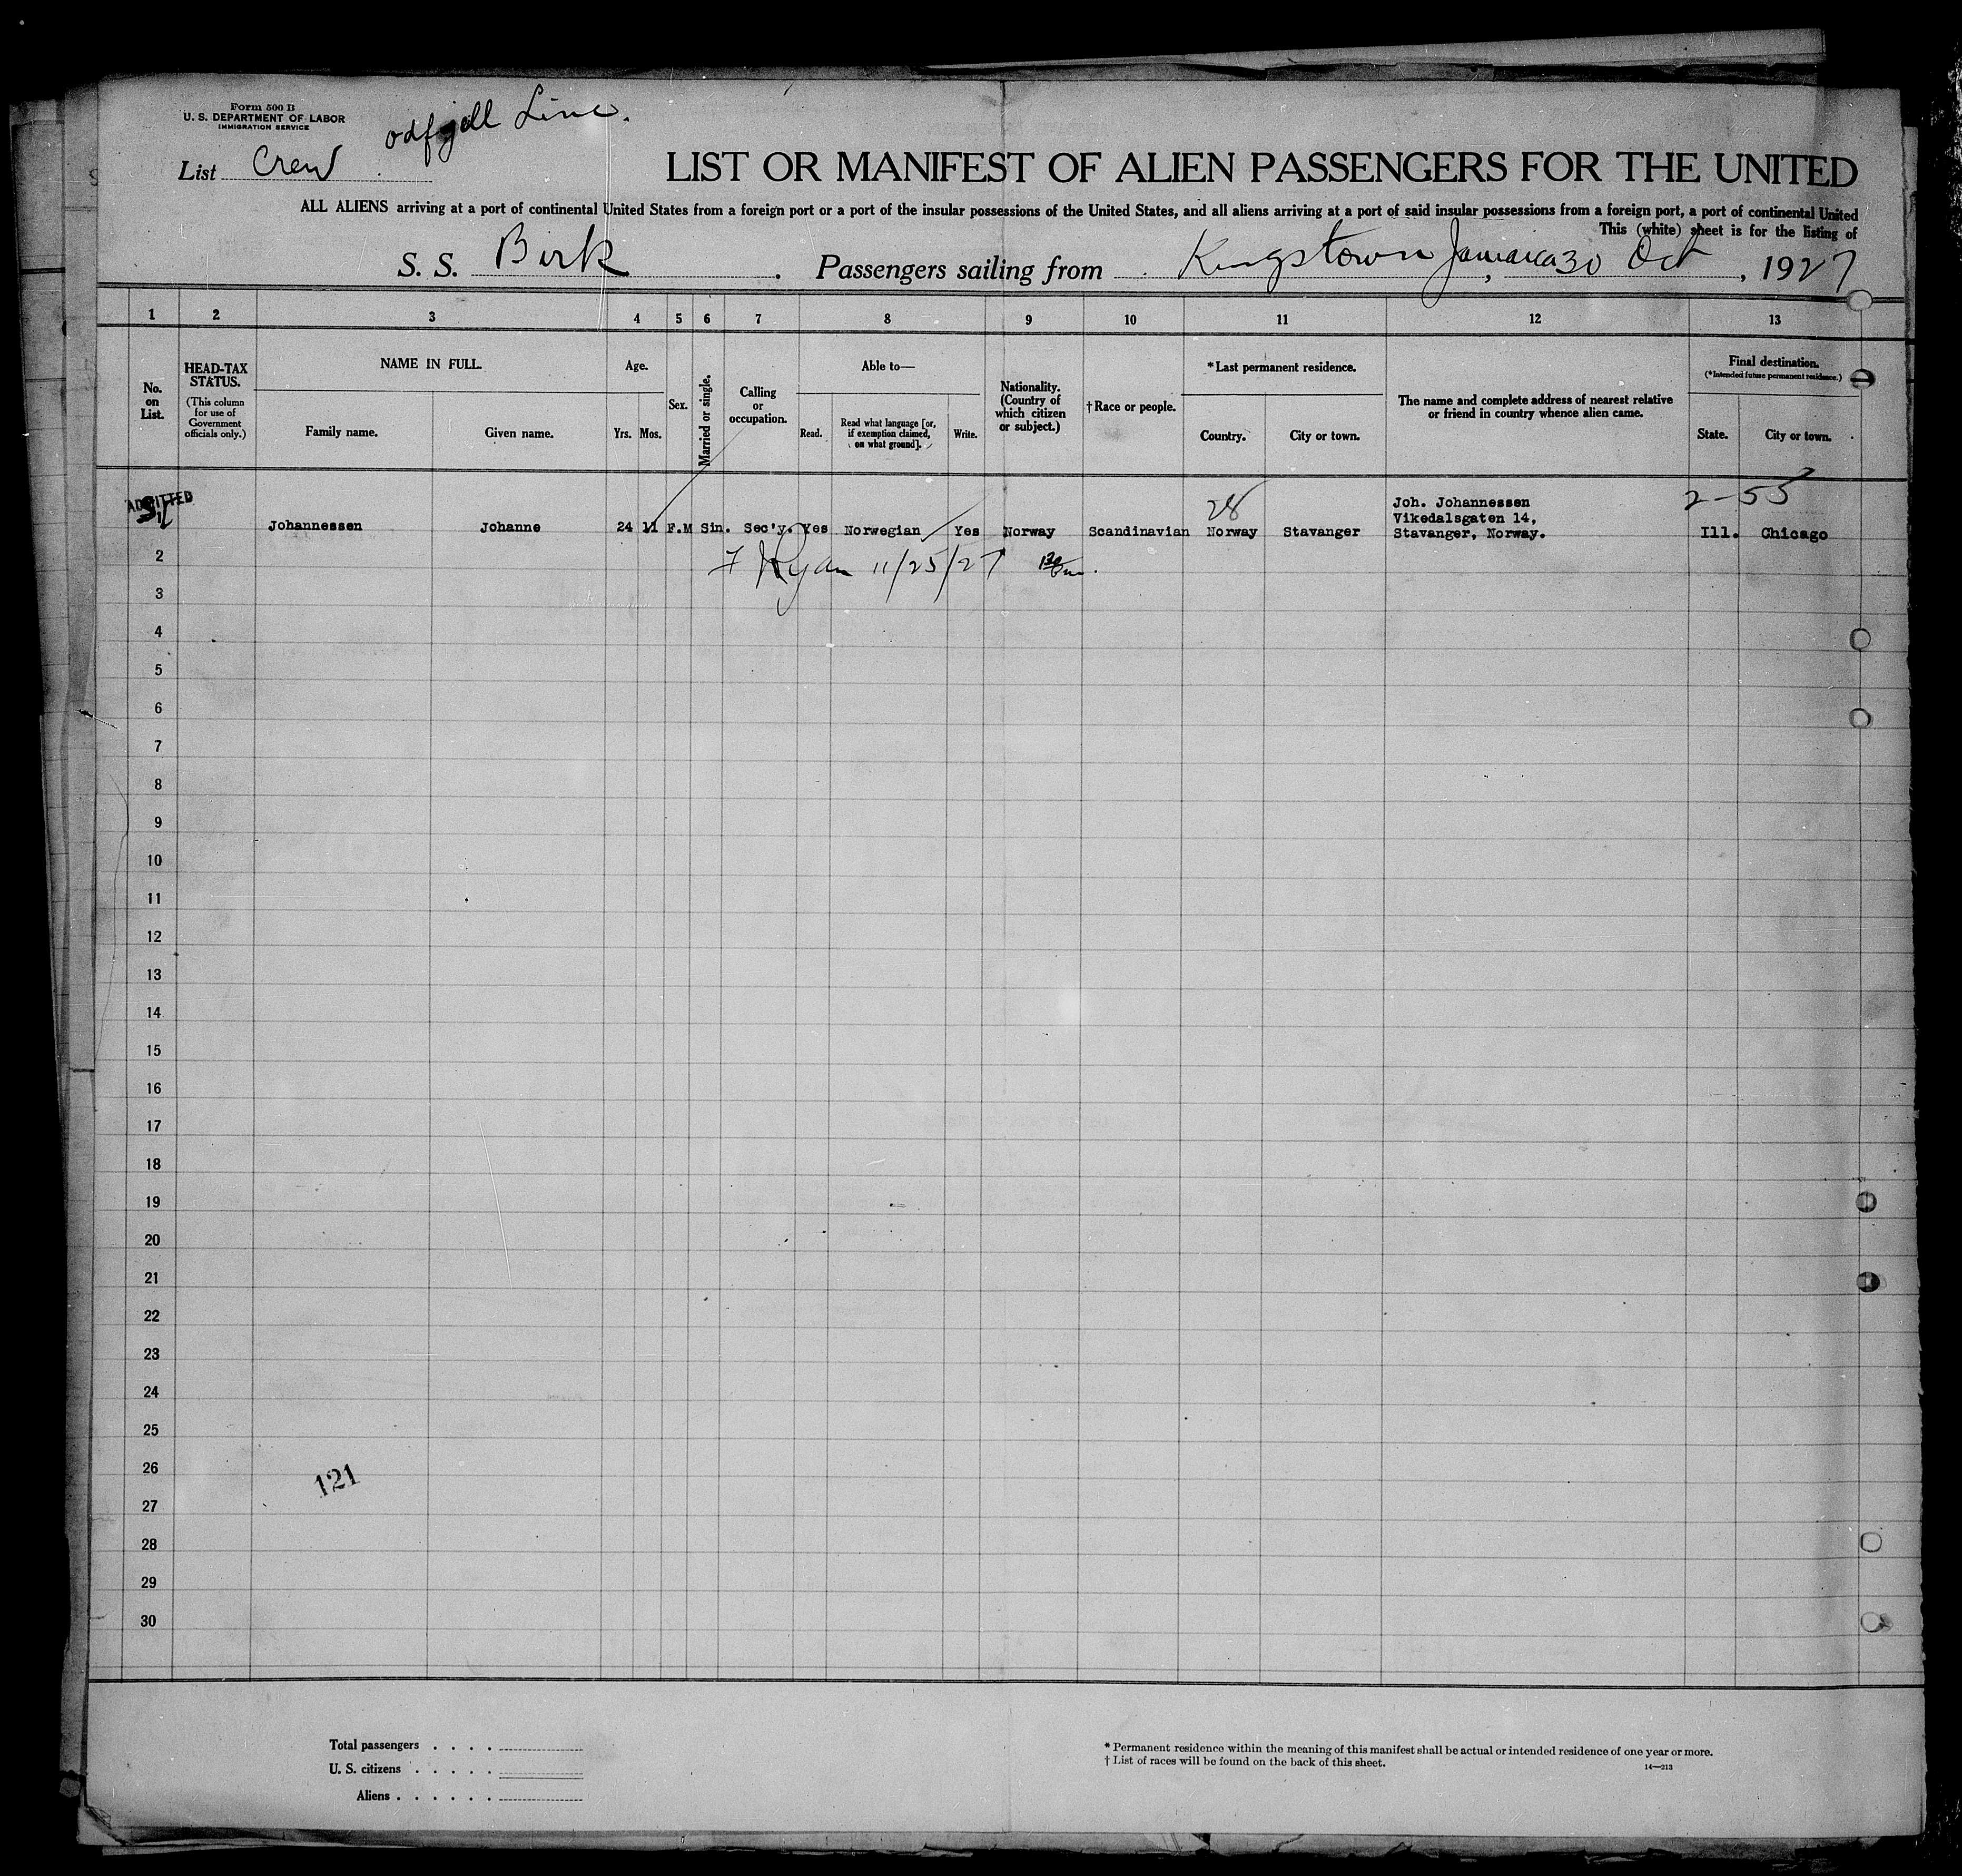 Form 500 B
U. S. DEPARTMENT OF LABOR
IMMIGRATION SERVICE
odfjell Line.
List Crew
LIST OR MANIFEST OF ALIEN PASSENGERS FOR THE UNITED
ALL ALIENS arriving at a port of continental United States from a foreign port or a port of the insular possessions of the United States, and all aliens arriving at a port of said insular possessions from a foreign port, a port of continental United
This (white) sheet is for the listing of
S. S. Birk . Passengers sailing from Kingstown Jamaica, 30 Oct, 1927
1 2 3 4 5 6 7 8 9 10 11 12 13
No. on List.
HEAD-TAX STATUS.
(This column for use of Government officials only.)
NAME IN FULL.
Family name. Given name.
Age.
Yrs. Mos.
Sex.
Married or single.
Calling or occupation.
Able to—
Read. Read what language [or, if exemption claimed, on what ground]. Write.
Nationality. (Country of which citizen or subject.)
†Race or people.
*Last permanent residence.
Country. City or town.
The name and complete address of nearest relative or friend in country whence alien came.
Final destination.
(*Intended future permanent residence.)
State. City or town.
ADMITTED
28
2-55
Joh. Johannessen
Vikedalsgaten 14,
Stavanger, Norway.
Johannessen Johanne 24 11 F.M Sin. Sec'y. Yes Norwegian Yes Norway Scandinavian Norway Stavanger Ill. Chicago
2 F Ryan 11/25/27
3
4
5
6
7
8
9
10
11
12
13
14
15
16
17
18
19
20
21
22
23
24
25
26
121
27
28
29
30
Total passengers . . . .
U. S. citizens . . . . .
Aliens . . . . . .
* Permanent residence within the meaning of this manifest shall be actual or intended residence of one year or more.
† List of races will be found on the back of this sheet.
14—213